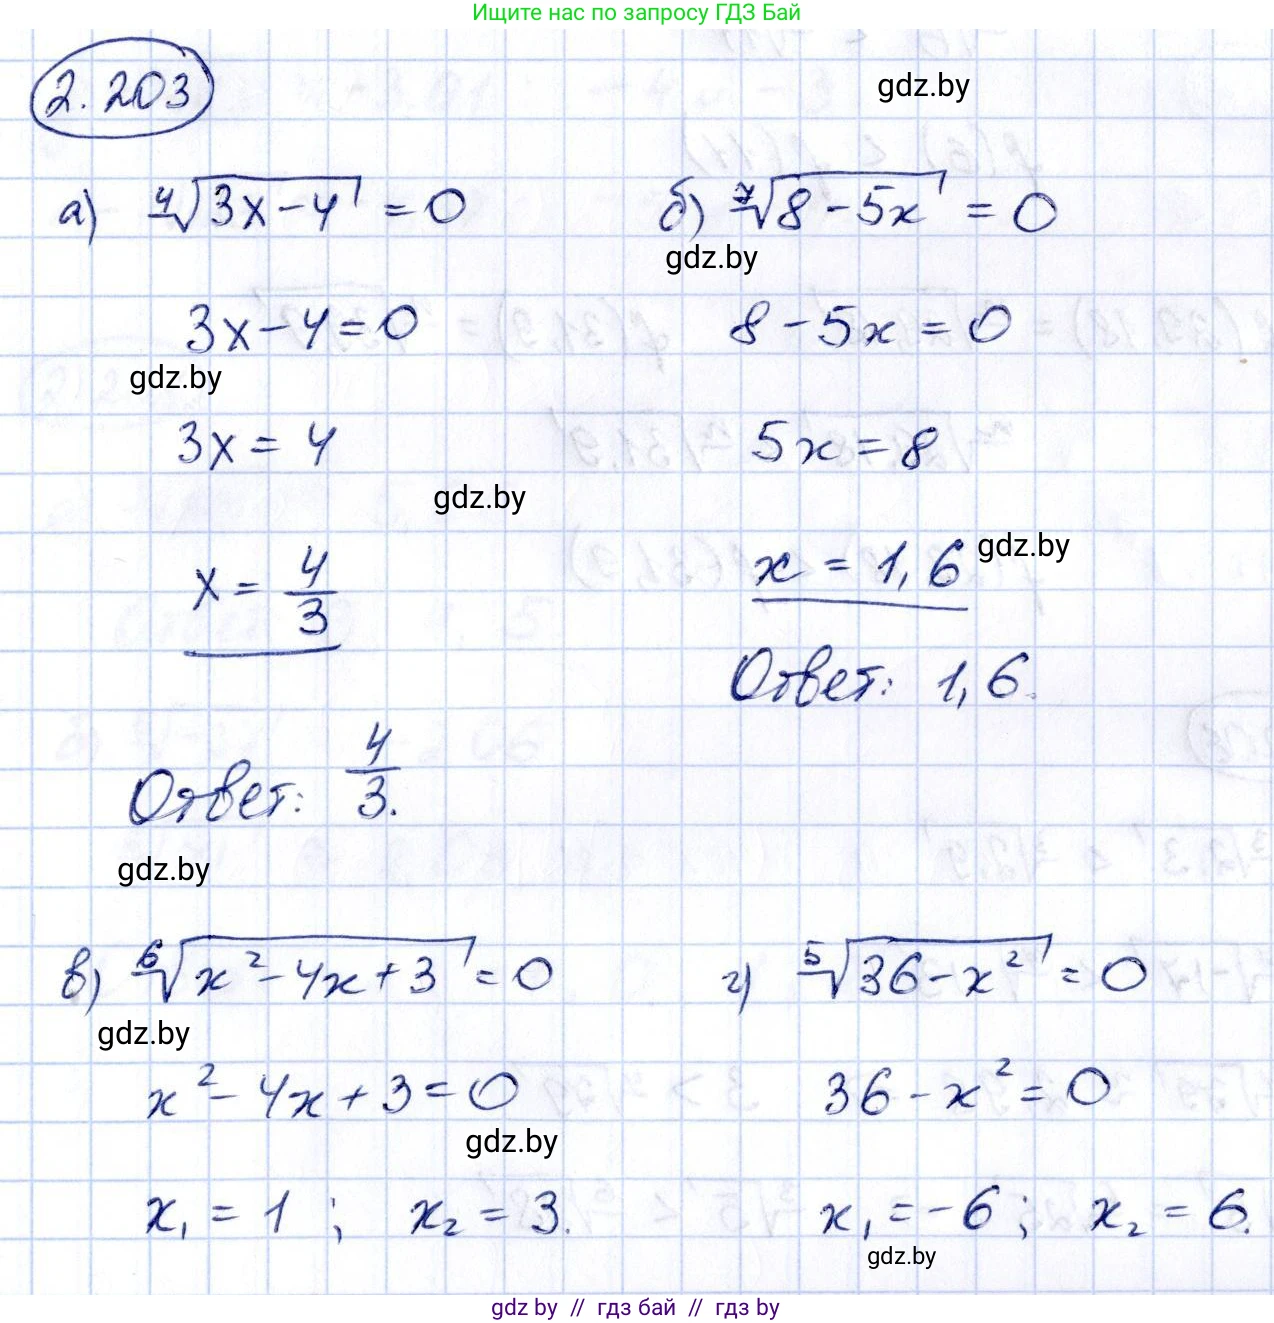 Ищите нас по запросу ГДЗ Бай
2.203
gdz.by
а) ∜(3x-4) = 0
б) ⁷√(8-5x) = 0
gdz.by
3x-4=0
8-5x=0
gdz.by
3x=4
5x=8
gdz.by
x = 4/3
x = 1,6
gdz.by
Ответ: 1,6.
Ответ: 4/3.
gdz.by
в) ⁶√(x²-4x+3) = 0
г) ⁵√(36-x²) = 0
gdz.by
x²-4x+3=0
36-x²=0
gdz.by
x₁ = 1 ; x₂ = 3.
x₁ = -6 ; x₂ = 6.
gdz.by
gdz by // гдз бай // гдз by